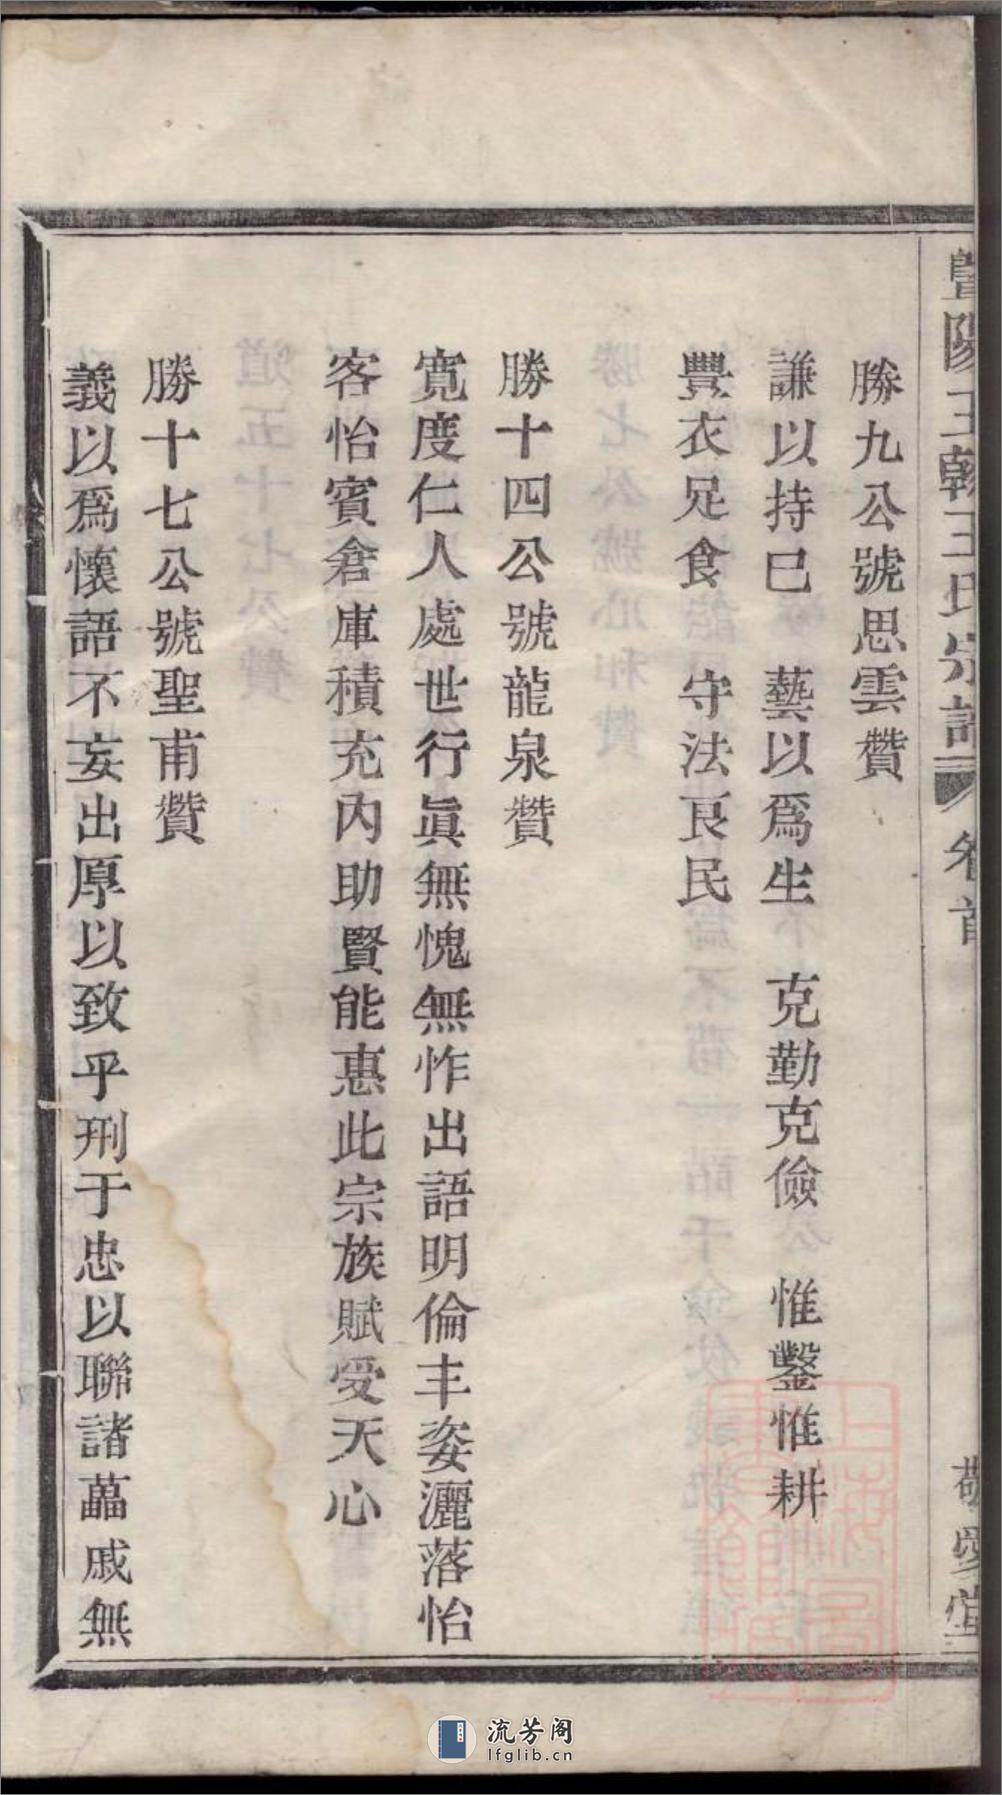 暨陽王翰王氏宗譜 卷首 敬愛堂
勝九公號思雲贊
謙以持已 藝以爲生 克勤克儉 惟鑿惟耕
豐衣足食 守法良民
勝十四公號龍泉贊
寬度仁人處世行眞無愧無怍出語明倫丰姿灑落怡
客怡賓倉庫積充內助賢能惠此宗族賦受天心
勝十七公號聖甫贊
義以爲懷語不妄出厚以致乎刑于忠以聯諸葛戚無
流芳阁
lfglib.cn